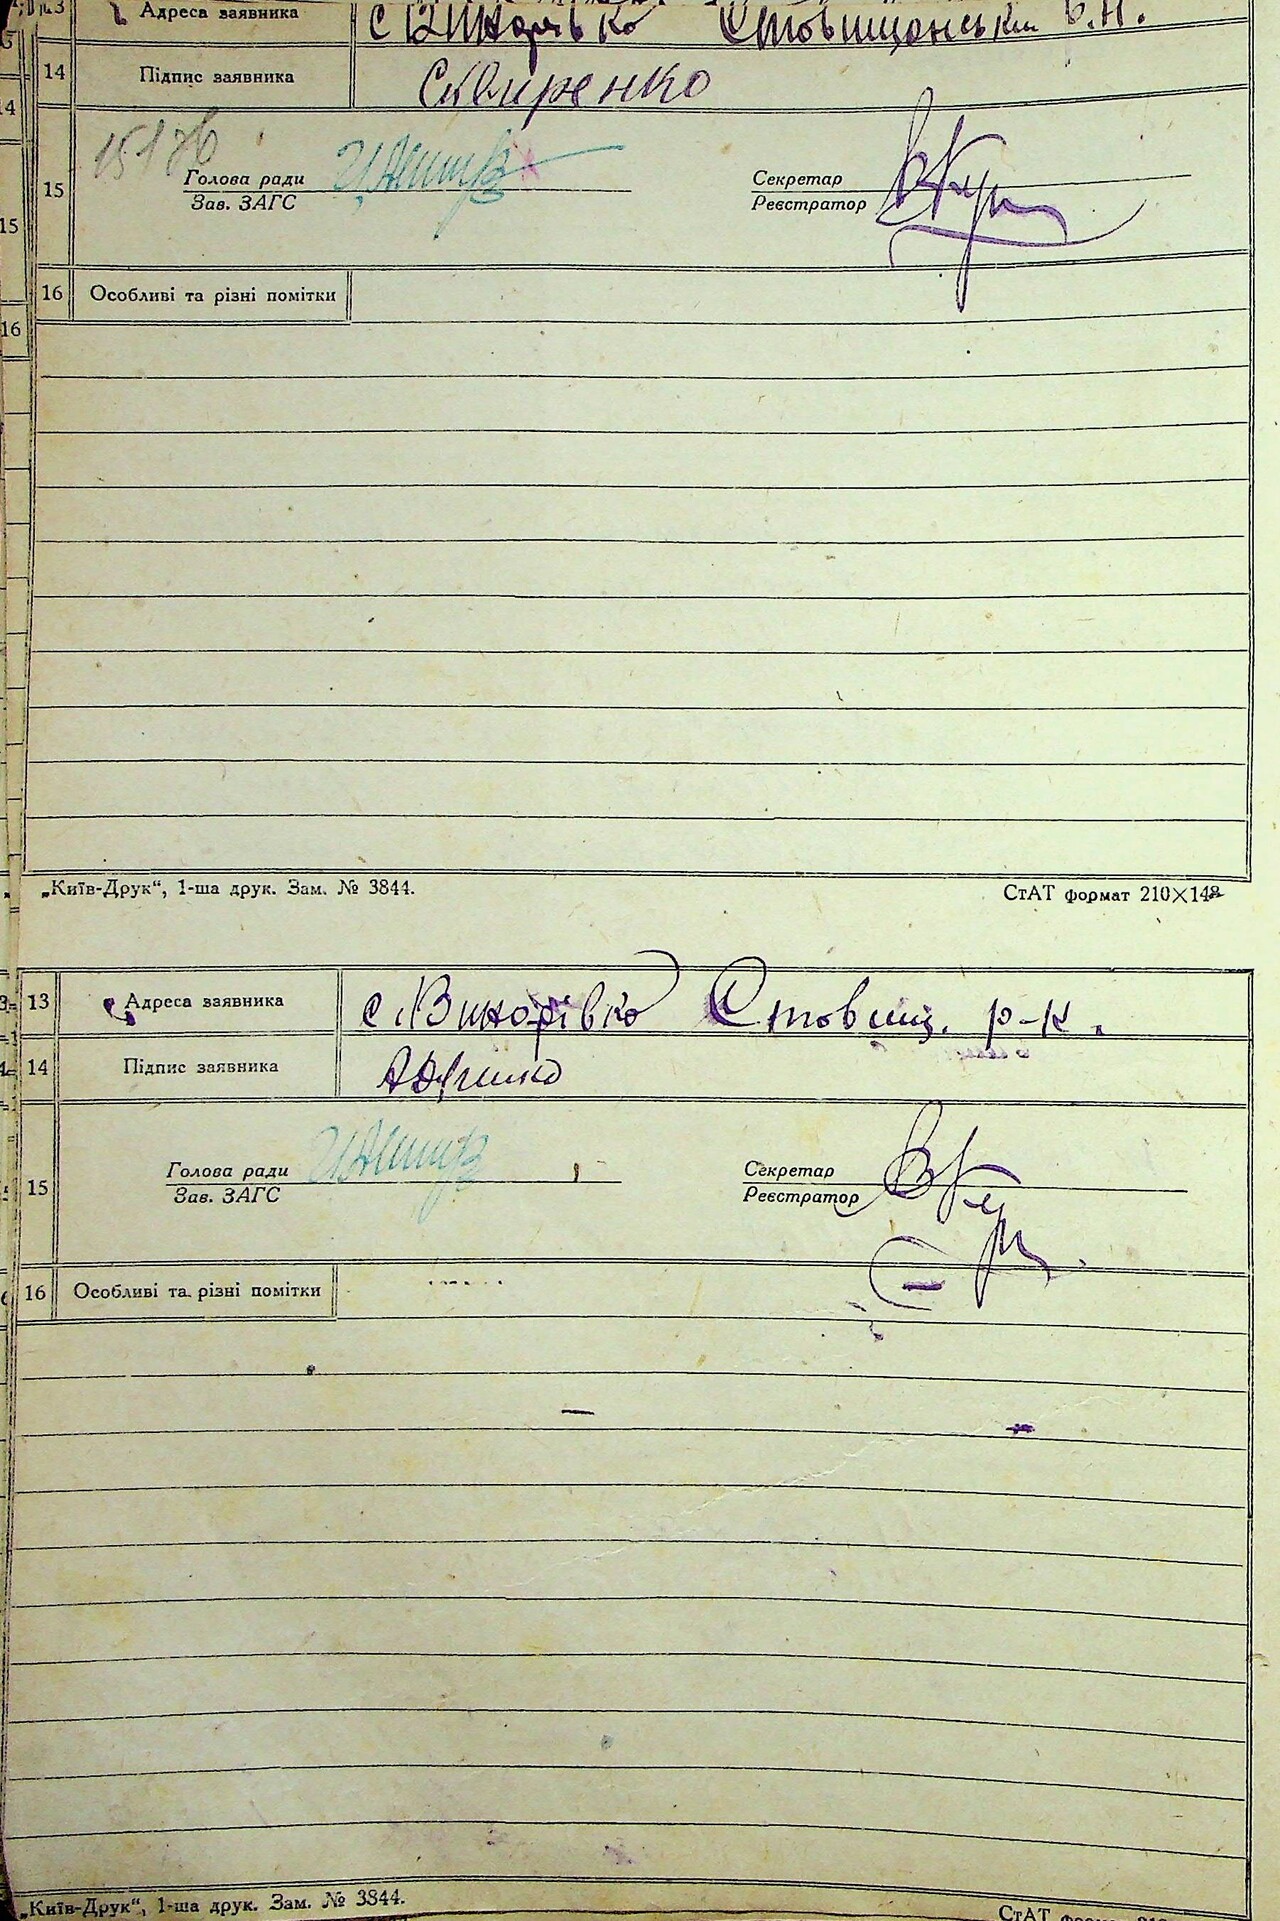 13 Адреса заявника с Винарівка Ставищанський
14 Підпис заявника Скляренко
Голова ради Секретар
15
Зав. ЗАГС Реєстратор
16 Особливі та різні помітки
„Київ-Друк“, 1-ша друк. Зам. № 3844. СтАТ формат 210×148
13 Адреса заявника с. Винарівка Ставищ. р-н.
14 Підпис заявника
Голова ради Секретар
15
Зав. ЗАГС Реєстратор
16 Особливі та різні помітки
„Київ-Друк“, 1-ша друк. Зам. № 3844. СтАТ